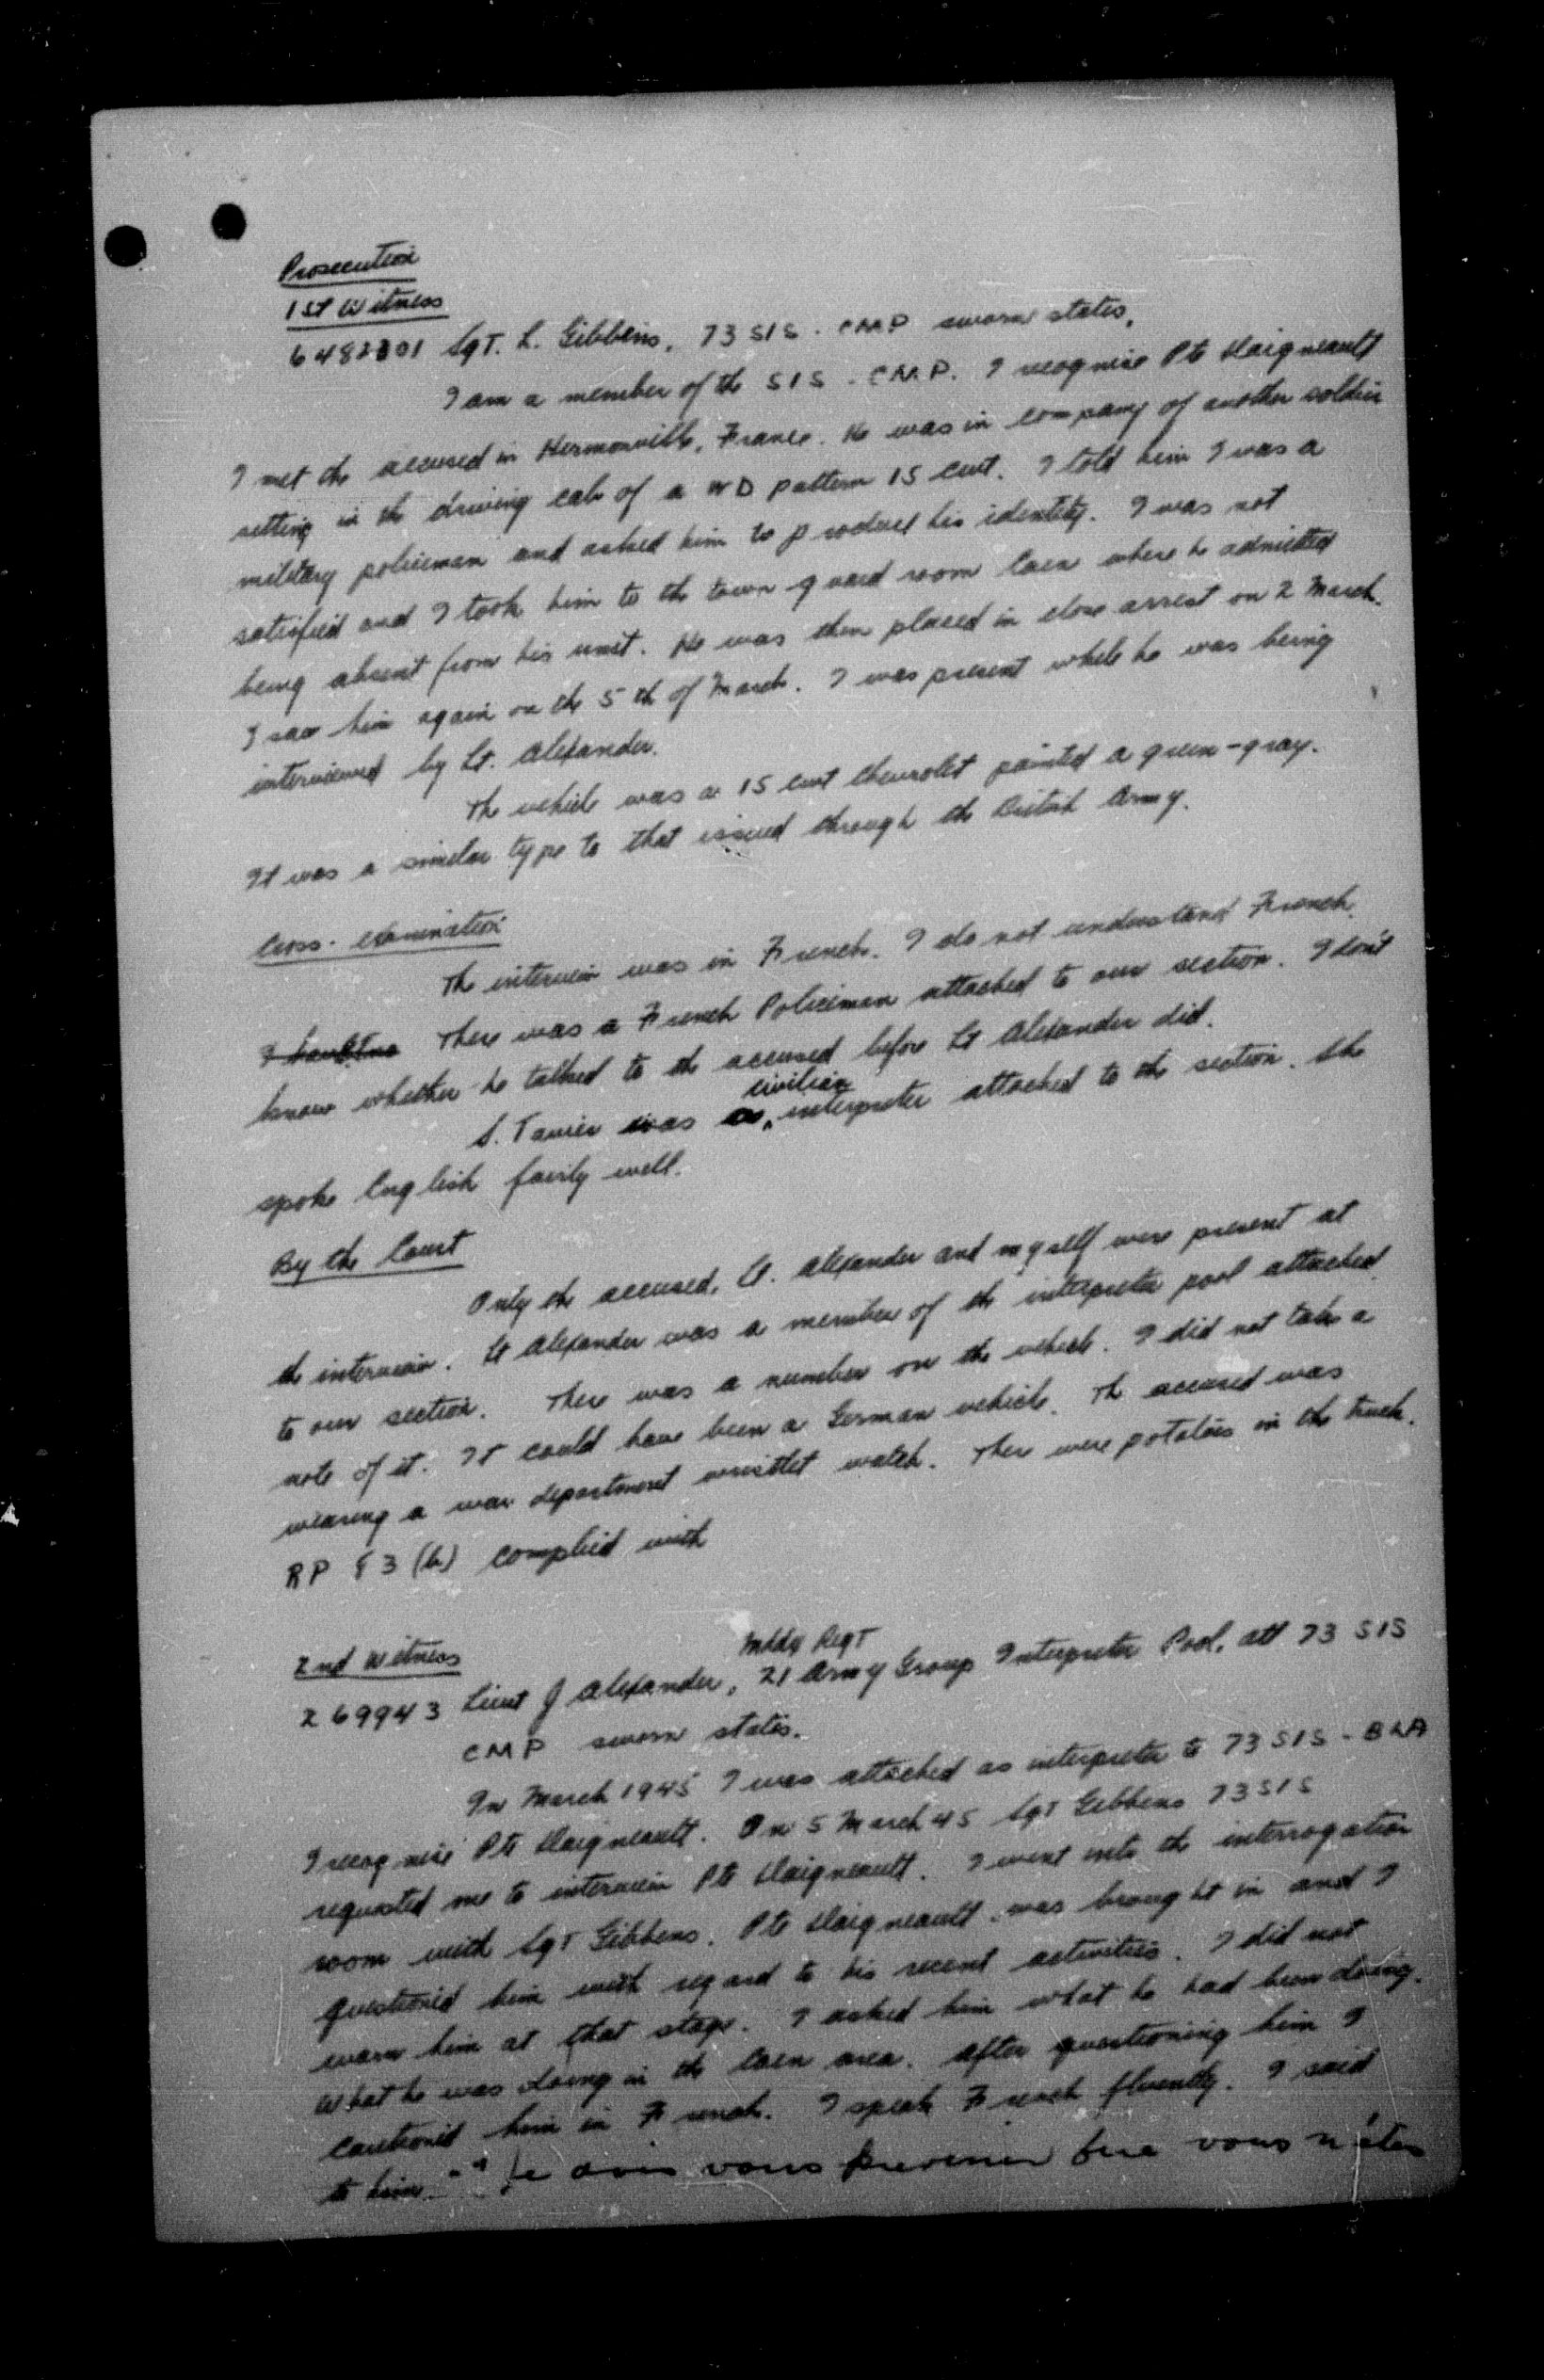 Prosecution
1st Witness
6482301 Sgt. L. Gibbens, 73 SIS - CMP sworn states,
I am a member of the SIS - CMP. I recognise Pte Daigneault
I met the accused in Hermanville, France. He was in company of another soldier
sitting in the driving cab of a WD pattern 15 cwt. I told him I was a
military policeman and asked him to produce his identity. I was not
satisfied and I took him to the town guard room Caen where he admitted
being absent from his unit. He was then placed in close arrest on 2 March.
I saw him again on the 5th of March. I was present while he was being
interviewed by Lt. Alexander.
The vehicle was a 15 cwt Chevrolet painted a green-gray.
It was a similar type to that issued through the British Army.
Cross-examination
The interview was in French. I do not understand French.
There was a French Policeman attached to our section. I don't
know whether he talked to the accused before Lt Alexander did.
S. Tanier was a civilian interpreter attached to the section. She
spoke English fairly well.
By the Court
Only the accused, Lt. Alexander and myself were present at
the interview. Lt Alexander was a member of the interpreter pool attached
to our section. There was a number on the vehicle. I did not take a
note of it. It could have been a German vehicle. The accused was
wearing a war department wristlet watch. There were potatoes in the truck.
RP 83 (b) complied with
2nd Witness
269943 Lieut J Alexander, Mddx Regt 21 Army Group Interpreter Pool, att 73 SIS
CMP sworn states.
In March 1945 I was attached as interpreter to 73 SIS - BLA
I recognise Pte Daigneault. On 5 March 45 Sgt Gibbens 73 SIS
requested me to interview Pte Daigneault. I went into the interrogation
room with Sgt Gibbens. Pte Daigneault was brought in and I
questioned him with regard to his recent activities. I did not
warn him at that stage. I asked him what he had been doing.
What he was doing in the Caen area. After questioning him I
cautioned him in French. I speak French fluently. I said
to him "Je dois vous prevenir que vous n'êtes